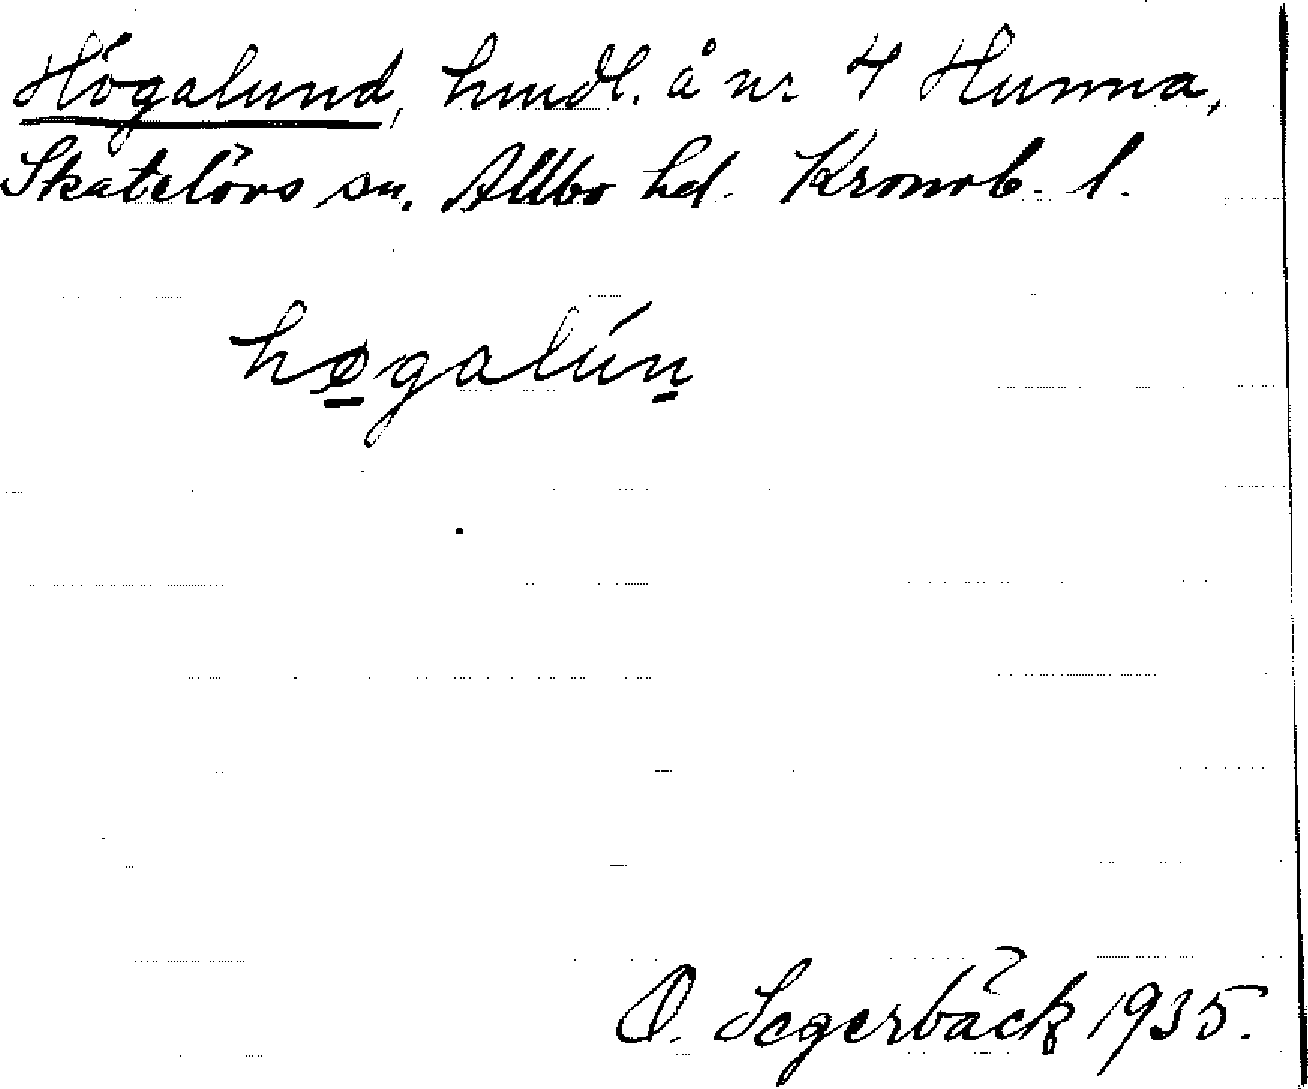 Högalund, hmdl. å nr 4 Hunna,
Skatelövs sn. Allbo hd. Kronob. l.
hø̠galún̠
O. Segerbäck 1935.